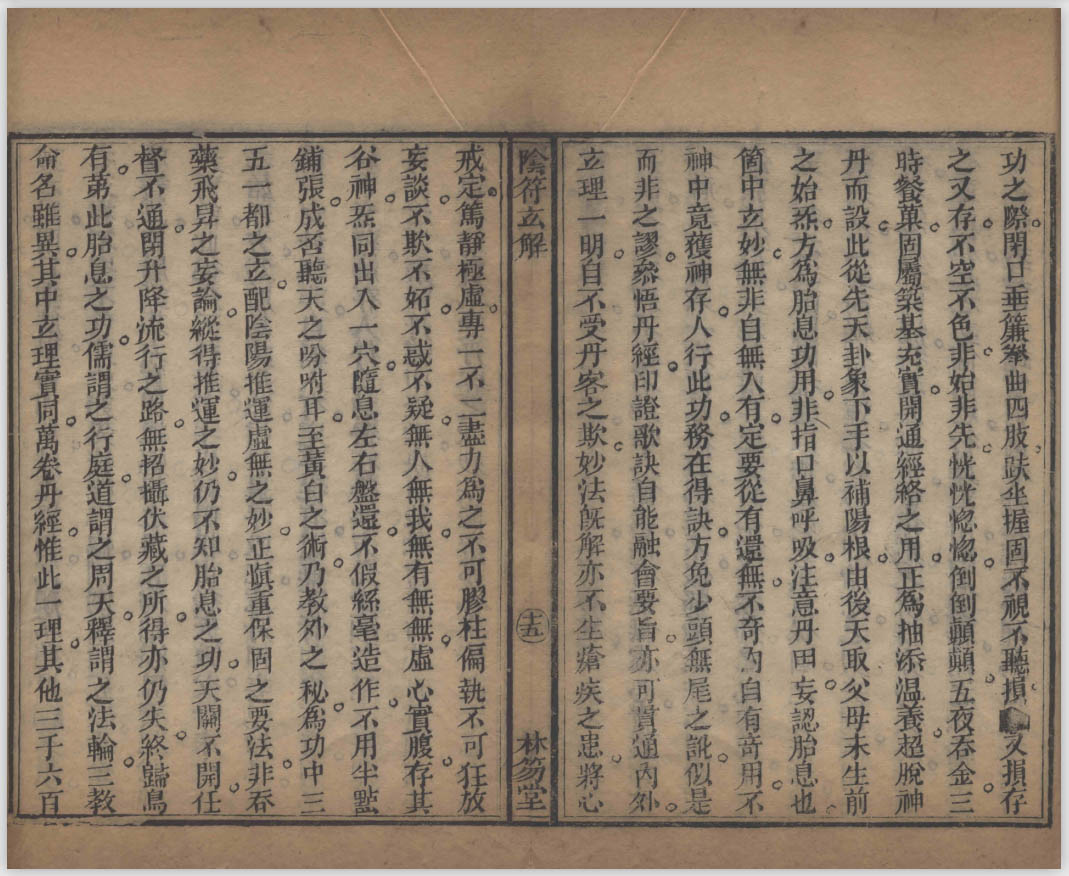 功之際閉口垂簾拳曲四肢趺坐握固不視不聽損之又損存
之又存不空不色非始非先恍恍惚惚倒倒顛顛五夜吞金三
時餐菓固屬築基充實開通經絡之用正為抽添温養超脫神
丹而設此從先天卦象下手以補陽根由後天取父母未生前
之始炁方為胎息功用非指口鼻呼吸注意丹田妄認胎息也
箇中玄妙無非自無入有定要從有還無不奇內自有竒用不
神中竟獲神存人行此功務在得訣方免少頭無尾之訛似是
而非之謬叅悟丹經印證歌訣自能融會要旨亦可貫通內外
立理一明自不受丹客之欺妙法旣解亦不生瘡疾之患將心
陰符玄解
十五
林芴堂
戒定篤靜極虛專一不二盡力為之不可膠柱偏執不可狂放
妄談不欺不妬不惑不疑無人無我無有無無虛心實腹存其
谷神炁同出入一穴隨息左右盤還不假絲毫造作不用半點
鋪張成否聽天之吩咐耳至黃白之術乃教外之秘為功中三
五一都之立配陰陽推運虛無之妙正愼重保固之要法非吞
藥飛昇之妄論縱得推運之妙仍不知胎息之功天關不開任
督不通閉升降流行之路無招攝伏藏之所得亦仍失終歸烏
有第此胎息之功儒謂之行庭道謂之周天釋謂之法輪三教
命名雖異其中玄理實同萬卷丹經惟此一理其他三千六百